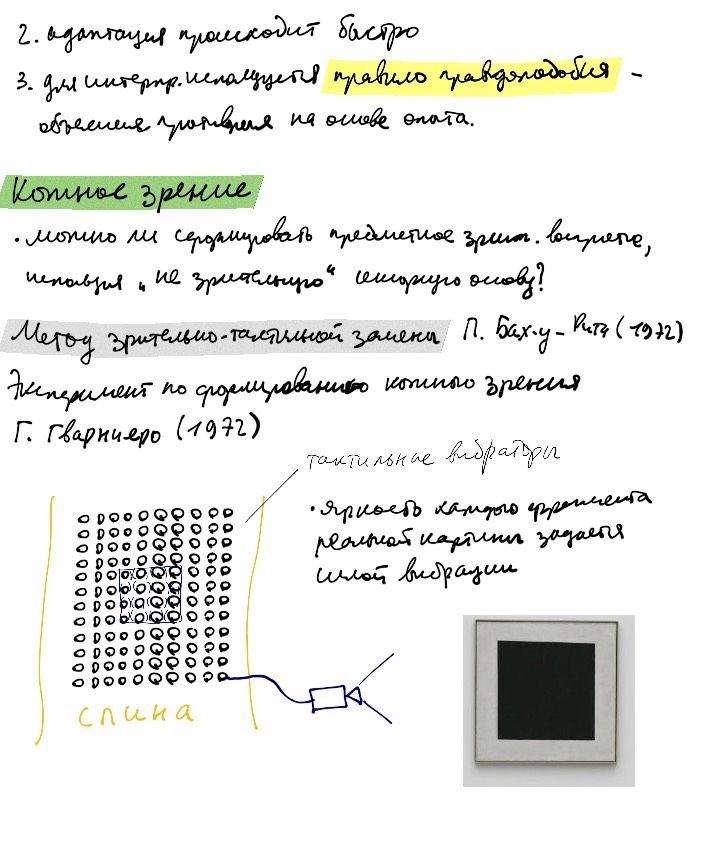 2. адаптация происходит быстро
3. для интерпр. используется правило правдоподобия –
объясняя против-ия на основе опыта.
Кожное зрение
• можно ли сформировать предметное зрит. восприятие,
используя „не зрительную" сенсорную основу?
Метод зрительно-тактильной замены П. Бах-у-Рита (1972)
Эксперимент по формированию кожного зрения
Г. Гварниеро (1972)
тактильные вибраторы
• яркость каждого фрагмента
реальной картины задается
силой вибрации
спина